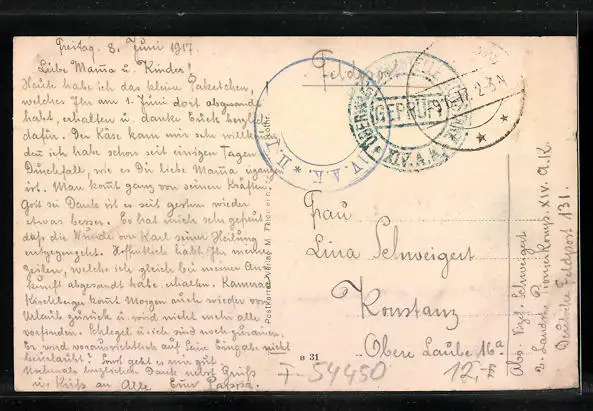 Freitag. 8. Juni 1917.
Liebe Mama u. Kinder!
Heute habe ich das kleine Paketchen,
welches Ihr am 1. Juni dort abgesandt
habt, erhalten u. danke Euch herzl.
dafür. Der Käse kam mir sehr willkommen
den ich habe schon seit einigen Tagen
Durchfall, wie es Dir liebe Mama
ist. Man komt ganz von seinen Kräften
Gott sei Dank ist es seit gestern wieder
etwas besser. Es hat mich sehr gefreut
daß die Wunde von Karl seiner Heilung
entgegengeht. Hoffentlich habt Ihr meine
Zeilen, welche ich gleich bei meiner An-
kunft abgesandt habe erhalten. Kamerad
Kirschberger komt Morgen auch wieder von
Urlaub zurück u. wird nicht mehr alle
vorfinden. Schlegel u. ich sind noch zusammen.
Er wird voraussichtlich auf seine Eingabe nicht
beurlaubt! Sonst geht es mir gut.
Nochmals herzlichen Dank nebst Gruß
u. Kuß an Alle Euer Pappa.
Feldpost
GEPRÜFT
XIV. A.
IV. A. K. * II.
9.6.17. 2-3N
Postkarten-Verlag M.
Frau
Lina Schweigert
Konstanz
Obere Laube 16a
B 31
T-54450
12.-
Abs. Vizf. Schweigert
2. Landw. Pionierkomp. XIV. A.K.
Deutsche Feldpost 131.